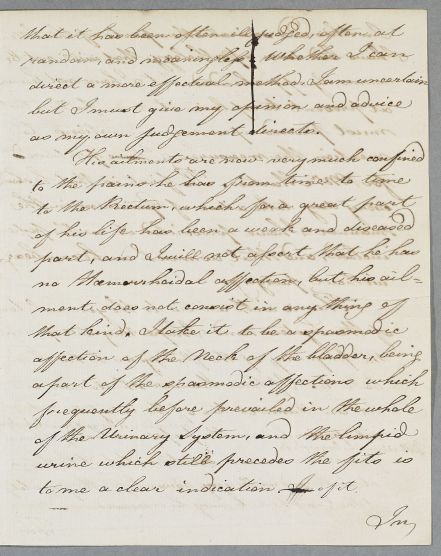 that it has been often ill judged, often at
random, and meaningless. Whether I can
direct a more effectual method I am uncertain
but I must give my opinion and advice
as my own judgement directs.
His ailments are now very much confined
to the pains he has from time to time
to the Rectum, which for a great part
of his life has been a weak and diseased
part, and I will not assert that he has
no Hæmorrhoidal affection, but his ail-
ment does not consist in any thing of
that kind. I take it to be a spasmodic
affection of the Neck of the bladder, being
a part of the spasmodic affections which
frequently before prevailed in the whole
of the Urinary System, and the limpid
urine which still precedes the fits is
to me a clear indication of it.
In